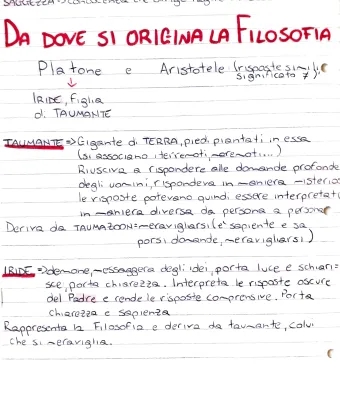 DA DOVE SI ORIGINA LA FILOSOFIA
Platone e Aristotele (risposte simili,
significato ≠)
↓
IRIDE, Figlia
di TAUMANTE
TAUMANTE => Gigante di TERRA, piedi piantati in essa
(si associano i terremoti, maremoti...)
Riusciva a rispondere alle domande profonde
degli uomini, rispondeva in maniera misterio
le risposte potevano quindi essere interpretat
in maniera diversa da persona a persona
Deriva da TAUMAZOON = meravigliarsi (e' sapiente e sa
porsi domande, meravigliarsi)
IRIDE => demone, messaggera degli idei, porta luce e schiari=
sce, porta chiarezza. Interpreta le risposte oscure
del Padre e rende le risposte comprensive. Porta
chiarezza e sapienza
Rappresenta la Filosofia e deriva da taumante, colui
che si meraviglia.